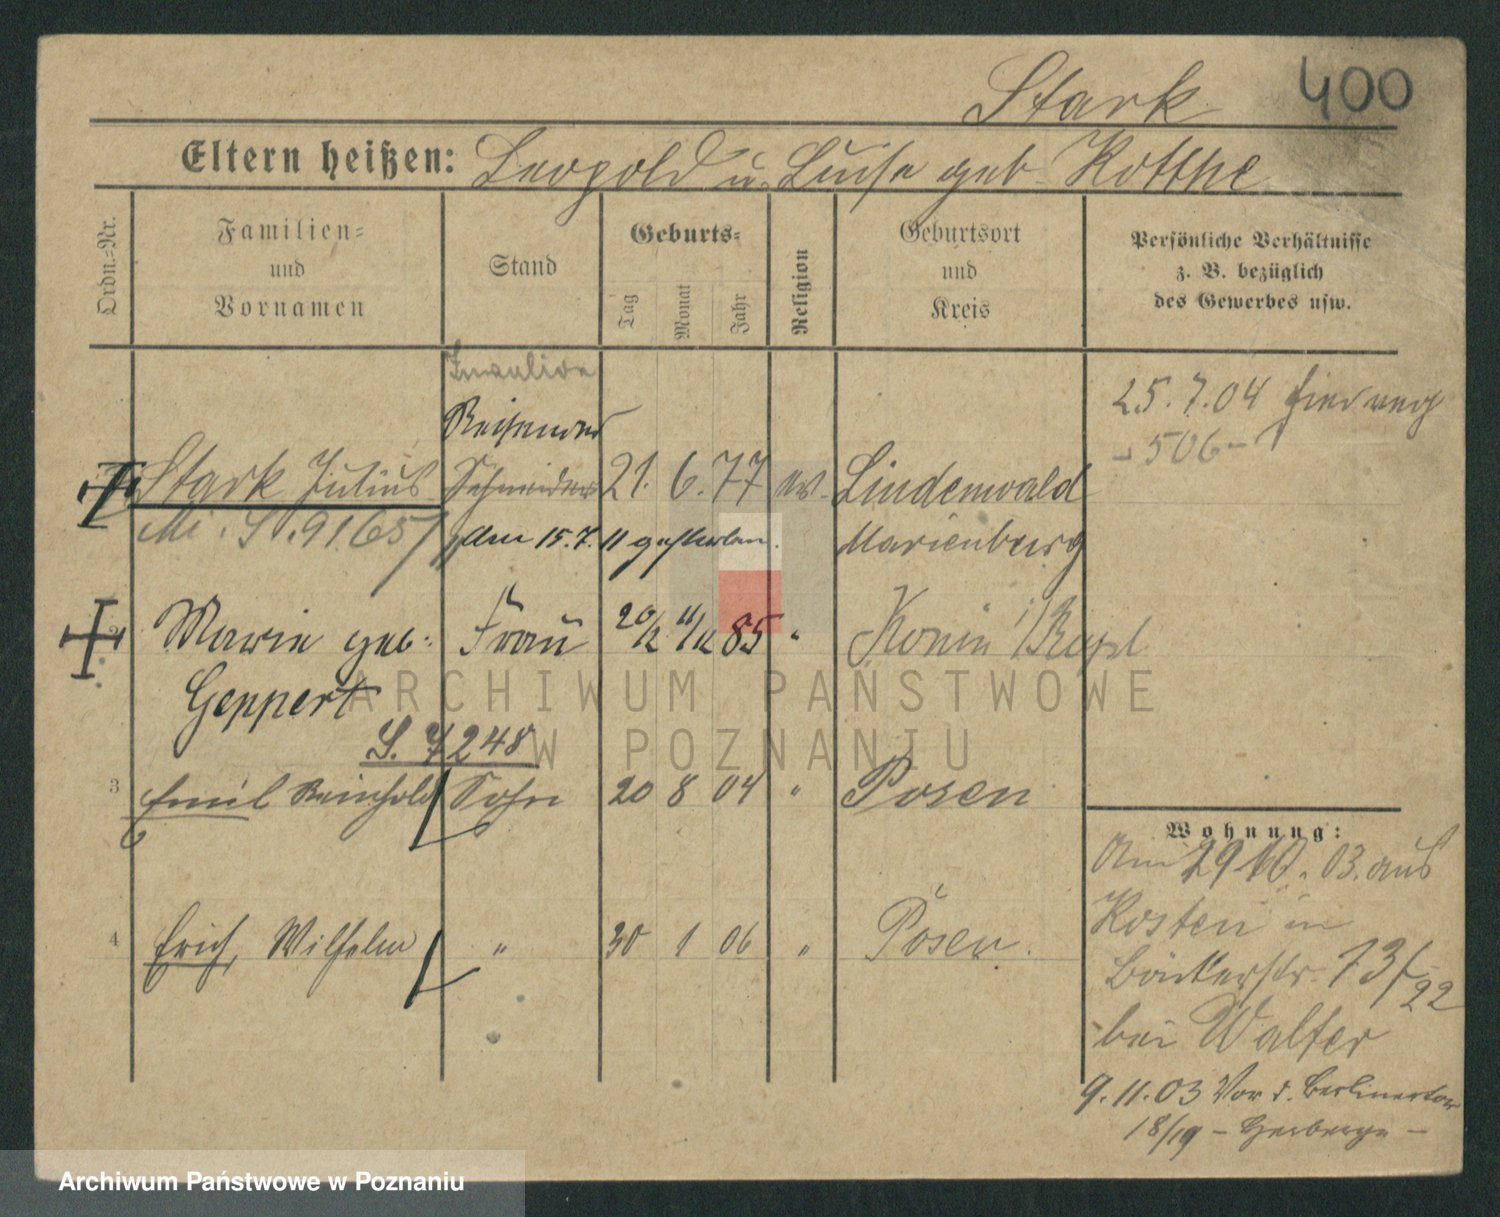 Stark 400
Eltern heißen: Leopold u. Luise geb. Kotthe
Ordn.=Nr.
Familien=
und
Vornamen
Stand
Geburts=
Tag
Monat
Jahr
Religion
Geburtsort
und
Kreis
Persönliche Verhältnisse
z. B. bezüglich
des Gewerbes usw.
Invalide
Reisender
Stark Julius Schneider 21. 6. 77 ev. Lindenwald
Marienburg
am 15.7.11 gestorben.
25.7.04
- 506 -
Marie geb. Frau 85 " Konin
Geppert
S. 7248
3 Emil Reinhold Sohn 20 8 04 " Posen
4 Erich, Wilhelm " 30 1 06 " Posen.
Wohnung:
Am 29 10. 03. aus
Kosten in
Bäckerstr. 13
22
bei Walter
9.11.03 Vor d. Berlinertor
18/19 - Herberge -
ARCHIWUM PAŃSTWOWE
W POZNANIU
Archiwum Państwowe w Poznaniu